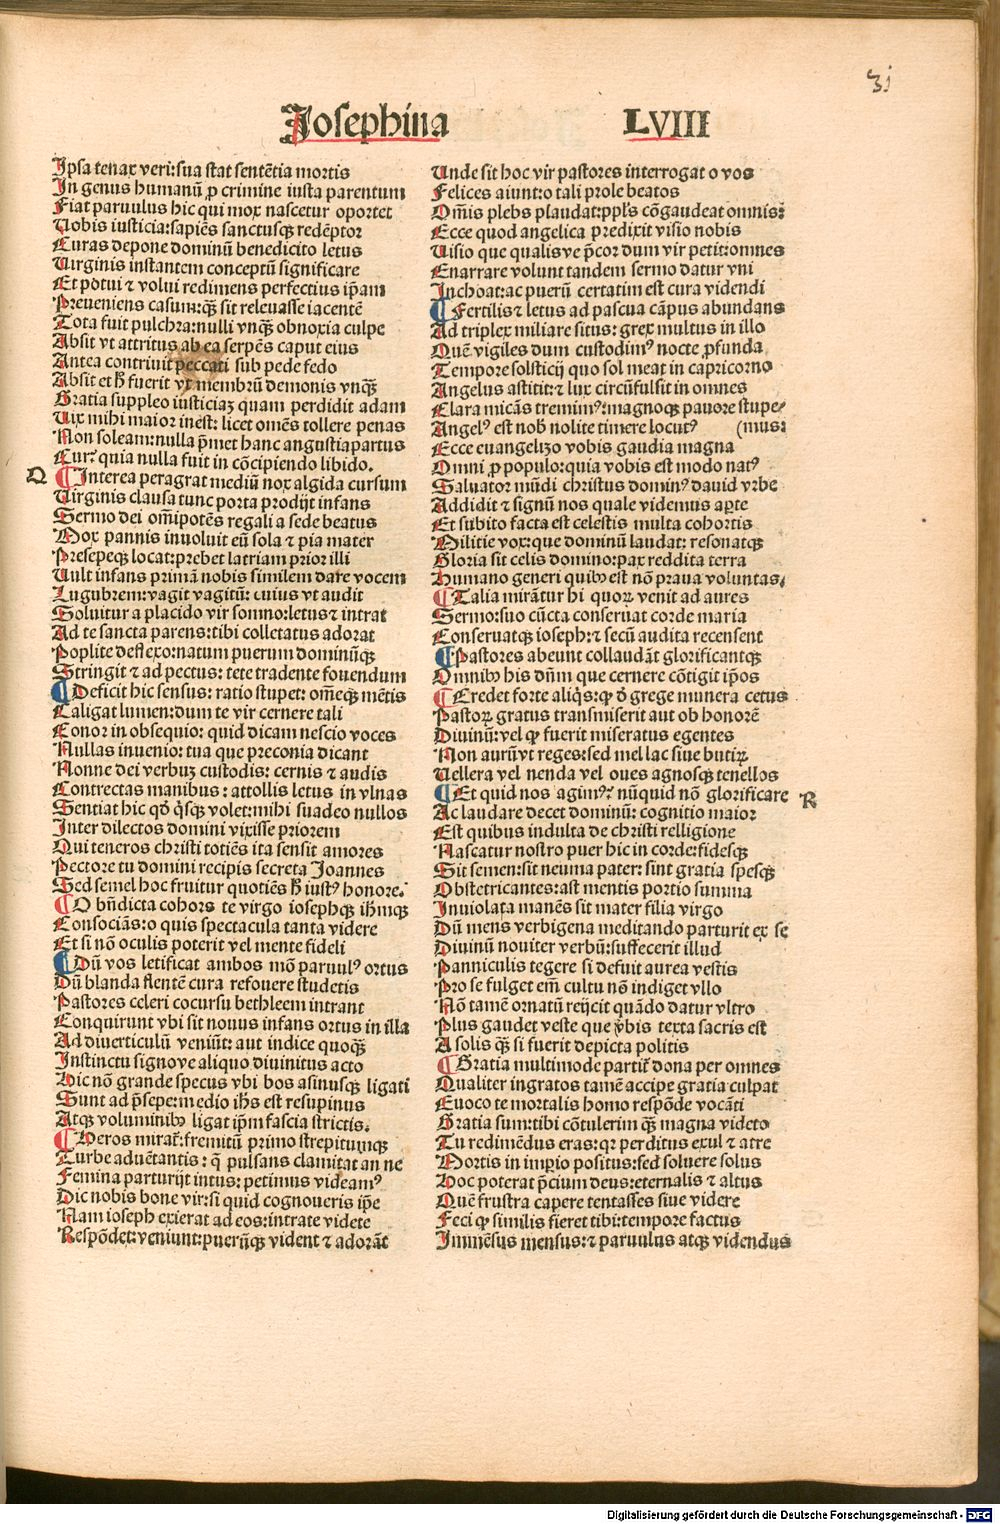 31
Josephina LVIII
Ipsa tenax veri: sua stat sentētia mortis
In genus humanū ꝓ crimine iusta parentum
Fiat paruulus hic qui mox nascetur oportet
Uobis iusticia: sapiēs sanctusqꝫ redēptor
Curas depone dominū benedicito letus
Uirginis instantem conceptū significare
Et potui ⁊ volui redimens perfectius ip̄am
Preueniens casum: qꝫ̄ sit releuasse iacentē
Tota fuit pulchra: nulli vnqꝫ̄ obnoxia culpe
Absit vt attritus ab ea serpēs caput eius
Antea contriuit peccati sub pede fedo
Absit et h̄ fuerit vt membrū demonis vnqꝫ̄
Gratia suppleo iusticiaꝫ quam perdidit adam
Uix mihi maior inest: licet omēs tollere penas
Non soleam: nulla p̄met hanc angustia partus
Curꝰ quia nulla fuit in cōcipiendo libido.
Q
¶ Interea peragrat mediū nox algida cursum
Uirginis clausa tunc porta prodijt infans
Sermo dei om̄ipotēs regali a sede beatus
Mox pannis inuoluit eū sola ⁊ pia mater
Presepeqꝫ locat: prebet latriam prior illi
Uult infans primā nobis similem dare vocem
Lugubrem: vagit vagitū: cuius vt audit
Soluitur a placido vir somno: letus ⁊ intrat
Ad te sancta parens: tibi colletatus adorat
Poplite deflexo: natum puerum dominūqꝫ
Stringit ⁊ ad pectus: tete tradente fouendum
¶ Deficit hic sensus: ratio stupet: om̄eqꝫ mētis
Caligat lumen: dum te vir cernere tali
Conor in obsequio: quid dicam nescio voces
Nullas inuenio: tua que preconia dicant
Nonne dei verbuꝫ custodis: cernis ⁊ audis
Contrectas manibus: attollis letus in vlnas
Sentiat hic qd̄ q̇sqꝫ volet: mihi suadeo nullos
Inter dilectos domini vixisse priorem
Qui teneros christi totiēs ita sensit amores
Pectore tu domini recipis secreta Joannes
Sed semel hoc fruitur quotiēs h̄ iustꝰ honore.
¶ O bn̄dicta cohors te virgo iosephqꝫ ih̄mqꝫ
Consociās: o quis spectacula tanta videre
Et si nō oculis poterit vel mente fideli
¶ Dū vos letificat ambos mō paruulꝰ ortus
Dū blanda flentē cura refouere studetis
Pastores celeri cocursu bethleem intrant
Conquirunt vbi sit nouus infans ortus in illa
Ad diuerticulū veniūt: aut indice quoqꝫ̄
Instinctu signove aliquo diuinitus acto
Hic nō grande specus vbi bos asinusqꝫ ligati
Sunt ad p̄sepe: medio ih̄s est resupinus
Atqꝫ voluminibꝰ ligat ip̄m fascia strictis.
¶ Heros mirat᷑: fremitū primo strepitumqꝫ
Turbe aduētantis: q̄ pulsans clamitat an ne
Femina parturijt intus: petimus videamꝰ
Dic nobis bone vir: si quid cognoueris ip̄e
Nam ioseph exierat ad eos: intrate videte
Respōdet: veniunt: puerūqꝫ vident ⁊ adorāt
Unde sit hoc vir pastores interrogat o vos
Felices aiunt: o tali prole beatos
Om̄is plebs plaudat: ppl̄s cōgaudeat omnis:
Ecce quod angelica predixit visio nobis
Uisio que qualisve p̄cor dum vir petit: omnes
Enarrare volunt tandem sermo datur vni
Inchoat: ac puerū certatim est cura videndi
¶ Fertilis ⁊ letus ad pascua cāpus abundans
Ad triplex miliare situs: grex multus in illo
Quē vigiles dum custodimꝰ nocte ꝓfunda
Tempore solsticij quo sol meat in capricorno
Angelus astitit: ⁊ lux circūfulsit in omnes
Clara micās tremimꝰ: magnoqꝫ pauore stupe/
Angelꝰ est nob̄ nolite timere locutꝰ (mus:
Ecce euangelizo vobis gaudia magna
Omni ꝓ populo: quia vobis est modo natꝰ
Saluator mūdi christus dominꝰ dauid vrbe
Addidit ⁊ signū nos quale videmus aꝑte
Et subito facta est celestis multa cohortis
Militie vox: que dominū laudat: resonatqꝫ
Gloria sit celis domino: pax reddita terra
Humano generi quibꝰ est nō praua voluntas.
¶ Talia mirātur hi quoꝝ venit ad aures
Sermo: suo cūcta conseruat corde maria
Conseruatqꝫ ioseph: ⁊ secū audita recensent
¶ Pastores abeunt collaudāt glorificantqꝫ
Omnibꝰ his dn̄m que cernere cōtigit ip̄os
¶ Credet forte aliq̇s: ꝙ ō grege munera cetus
Pastoꝝ gratus transmiserit aut ob honorē
Diuinū: vel ꝙ fuerit miseratus egentes
Non aurū vt reges: sed mel lac siue butiꝝ
Uellera vel nenda vel oues agnosqꝫ tenellos
R
¶ Et quid nos agimꝰ: nūquid nō glorificare
Ac laudare decet dominū: cognitio maior
Est quibus indulta de christi relligione
Nascatur nostro puer hic in corde: fidesqꝫ
Sit semen: sit neuma pater: sint gratia spesqꝫ
Obstetricantes: ast mentis portio summa
Inuiolata manēs sit mater filia virgo
Dū mens verbigena meditando parturit ex se
Diuinū nouiter verbū: suffecerit illud
Panniculis tegere si defuit aurea vestis
Pro se fulget em̄ cultu nō indiget vllo
Nō tamē ornatū reijcit quādo datur vltro
Plus gaudet veste que v̄bis texta sacris est
A solis qꝫ̄ si fuerit depicta politis
¶ Gratia multimode partit᷑ dona per omnes
Qualiter ingratos tamē accipe gratia culpat
Euoco te mortalis homo respōde vocāti
Gratia sum: tibi cōtulerim qꝫ̄ magna videto
Tu redimēdus eras: qꝛ perditus exul ⁊ atre
Mortis in imꝑio positus: sed soluere solus
Hoc poterat p̄cium deus: eternalis ⁊ altus
Quē frustra capere tentasses siue videre
Feci ꝙ similis fieret tibi: tempore factus
Immēsus mensus: ⁊ paruulus atqꝫ videndus
Digitalisierung gefördert durch die Deutsche Forschungsgemeinschaft - DFG